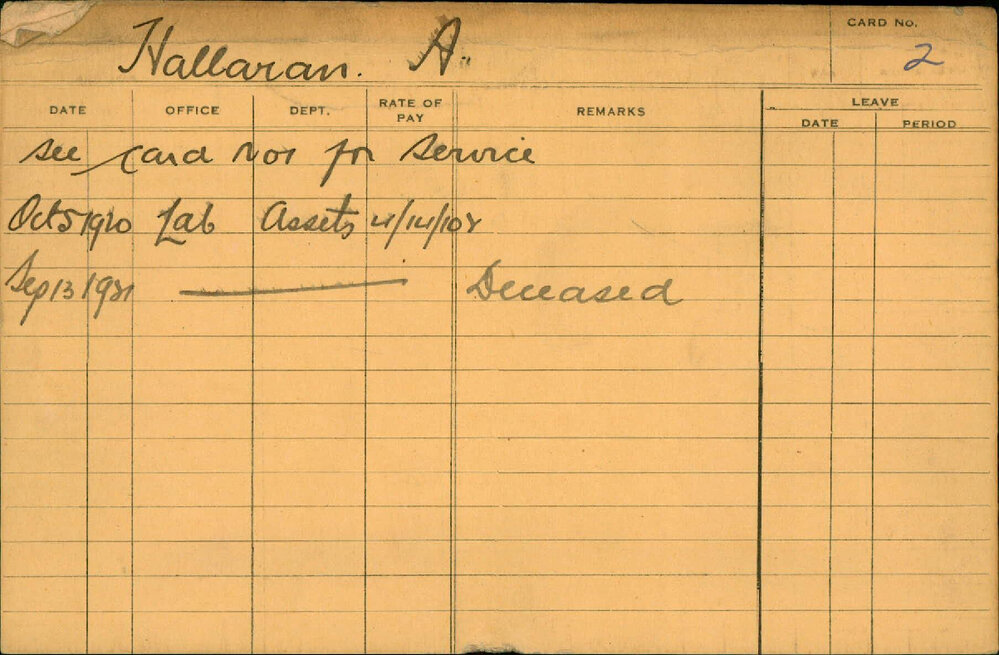 Hallaran. A.
CARD No.
2
DATE OFFICE DEPT. RATE OF PAY REMARKS LEAVE
DATE PERIOD
See Card No1 for Service
Oct 5 1920 Lab Assets 4/14/10
Sep 13 1921 Deceased